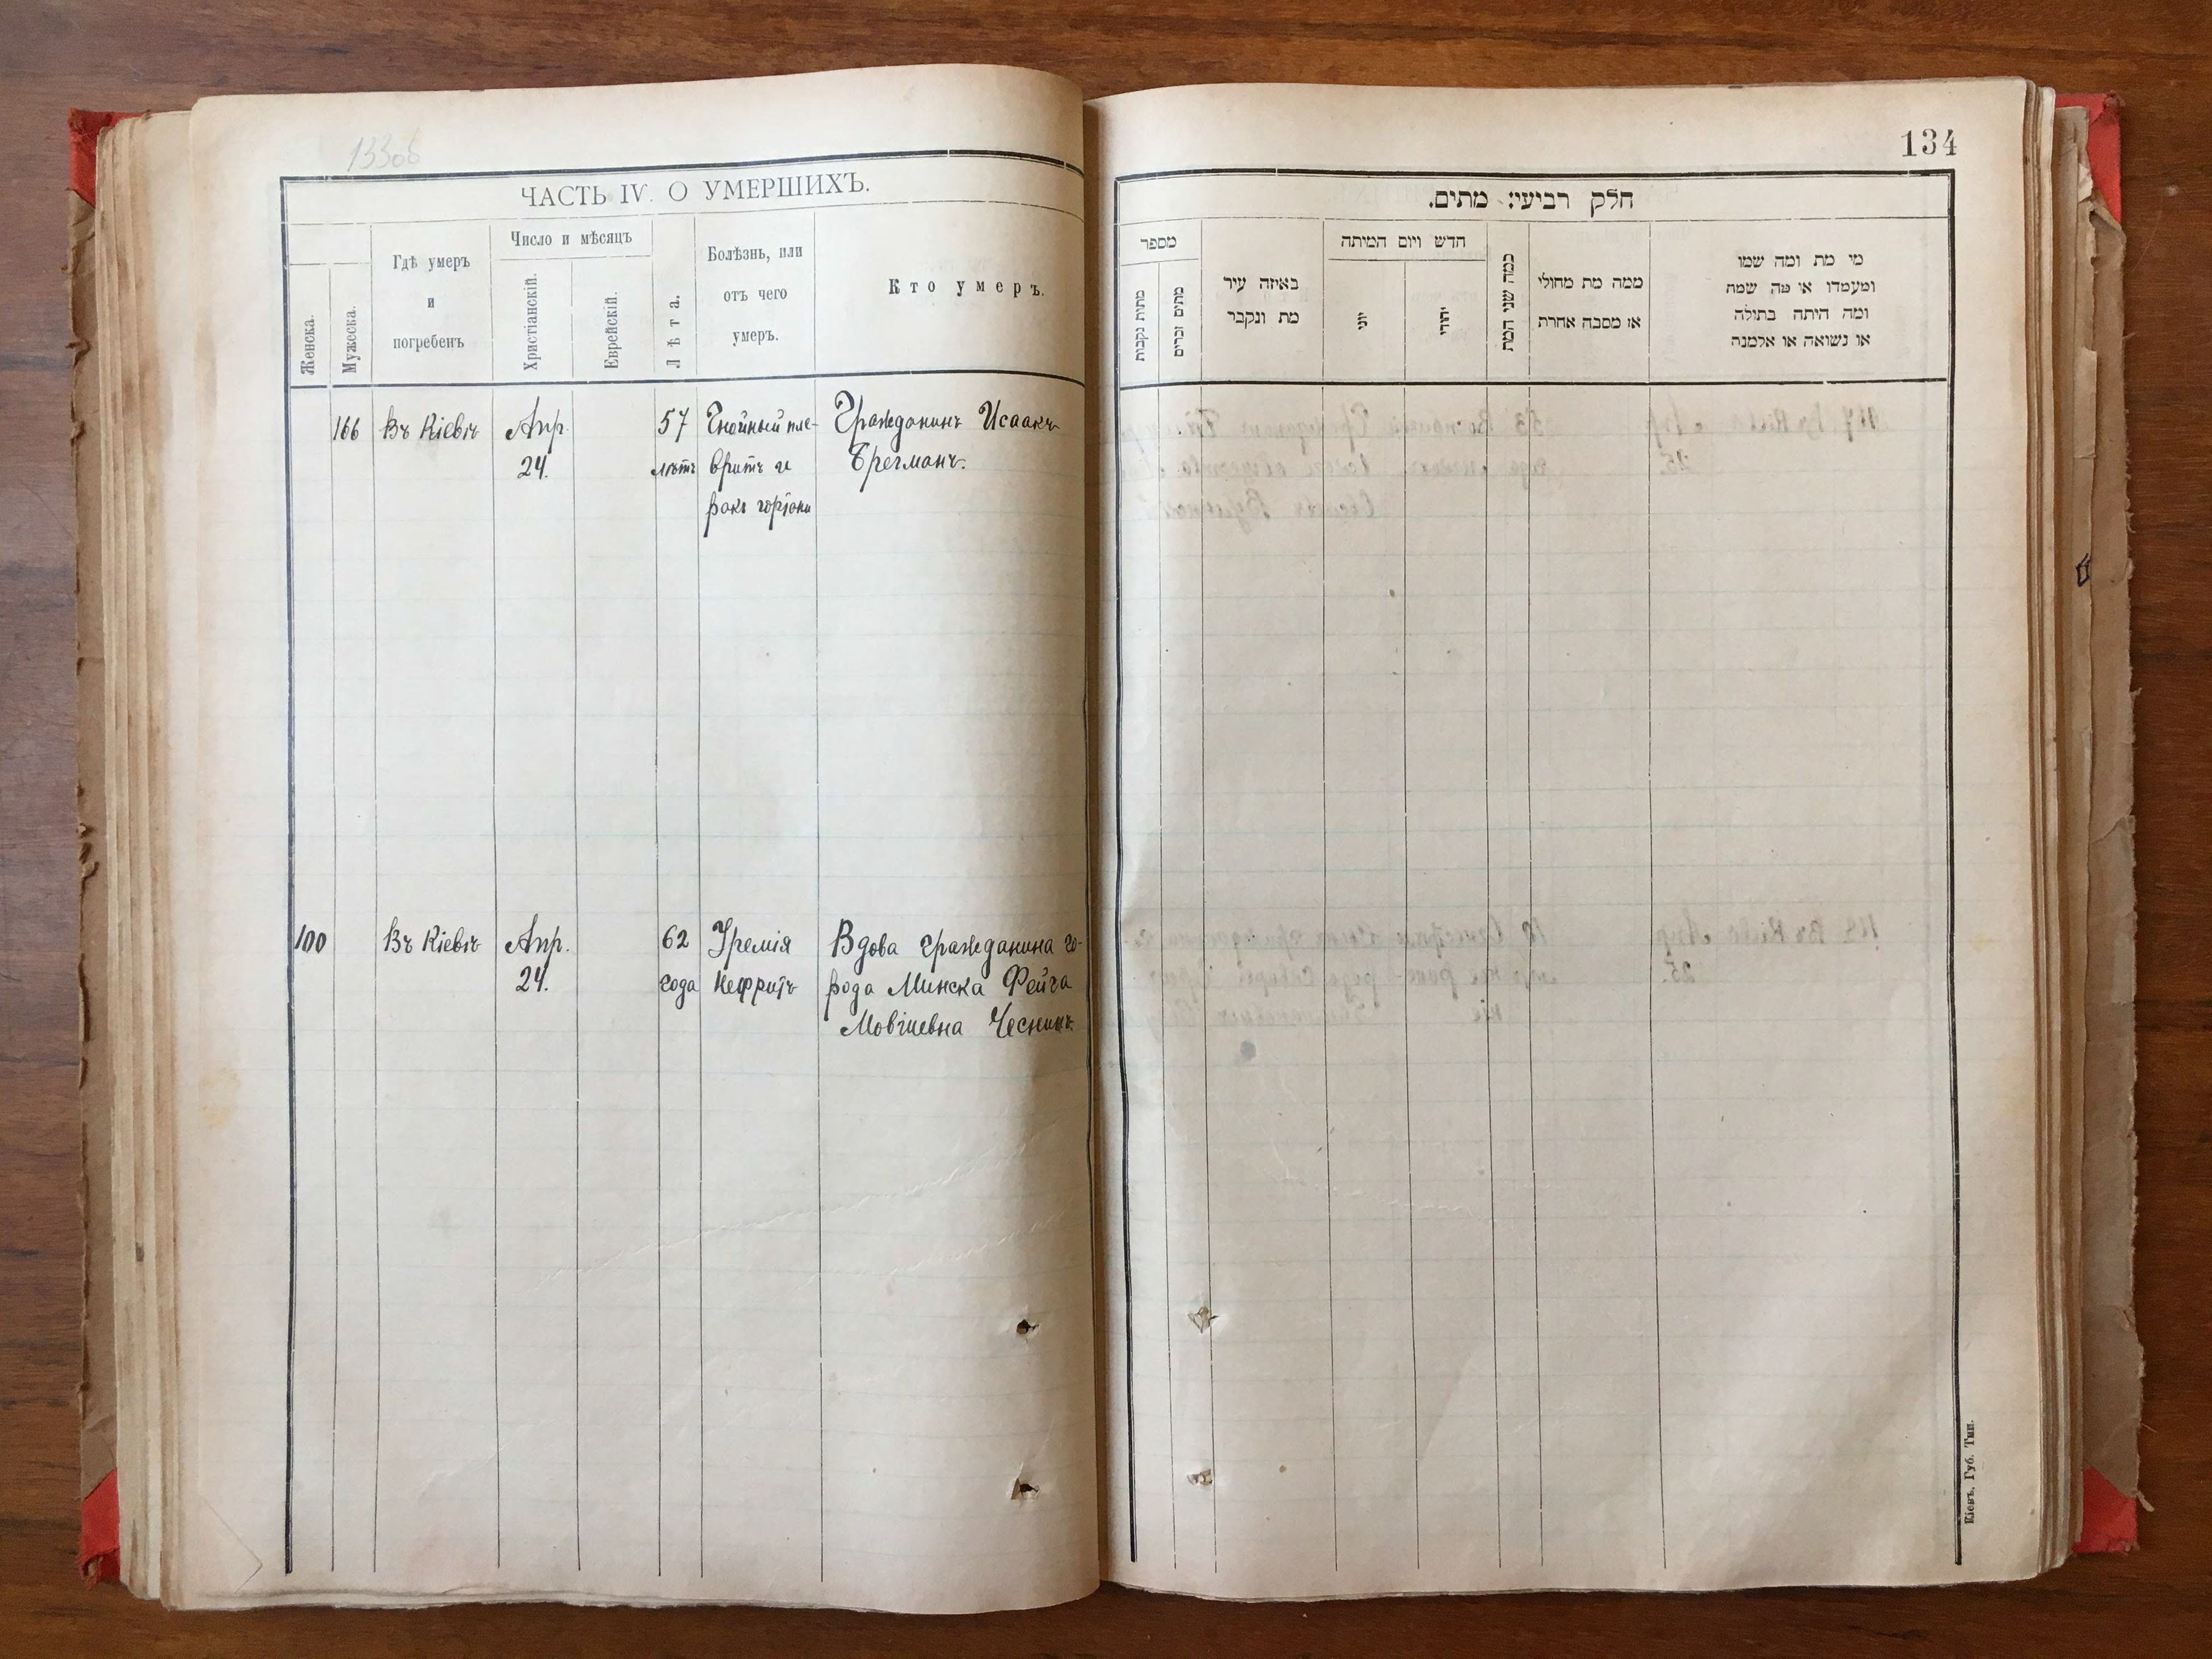 133об
ЧАСТЬ IV. О УМЕРШИХЪ.
Женска.
Мужеска.
Гдѣ умеръ
и
погребенъ
Число и мѣсяцъ
Христіанскій.
Еврейскій.
Лѣта.
Болѣзнь, или
отъ чего
умеръ.
Кто умеръ.
166 Въ Кіевѣ Апр. 57 Гнойный пле- Гражданинъ Исаакъ
24. лѣтъ вритъ и Брегманъ.
ракъ гортани
100 Въ Кіевѣ Апр. 62 Уремія Вдова гражданина го-
24. года Нефритъ рода Минска Фейга
Мовшевна Чеснинъ
134
חלק רביעי: מתים.
מספר
מתות נקבות
מתים זכרים
באיזה עיר
מת ונקבר
חדש ויום המיתה
יוני
יהודי
כמה שני המת
ממה מת מחולי
או מסבה אחרת
מי מת ומה שמו
ומעמדו או מה שמה
ומה היתה בתולה
או נשואה או אלמנה
Кіевъ, Губ. Тип.